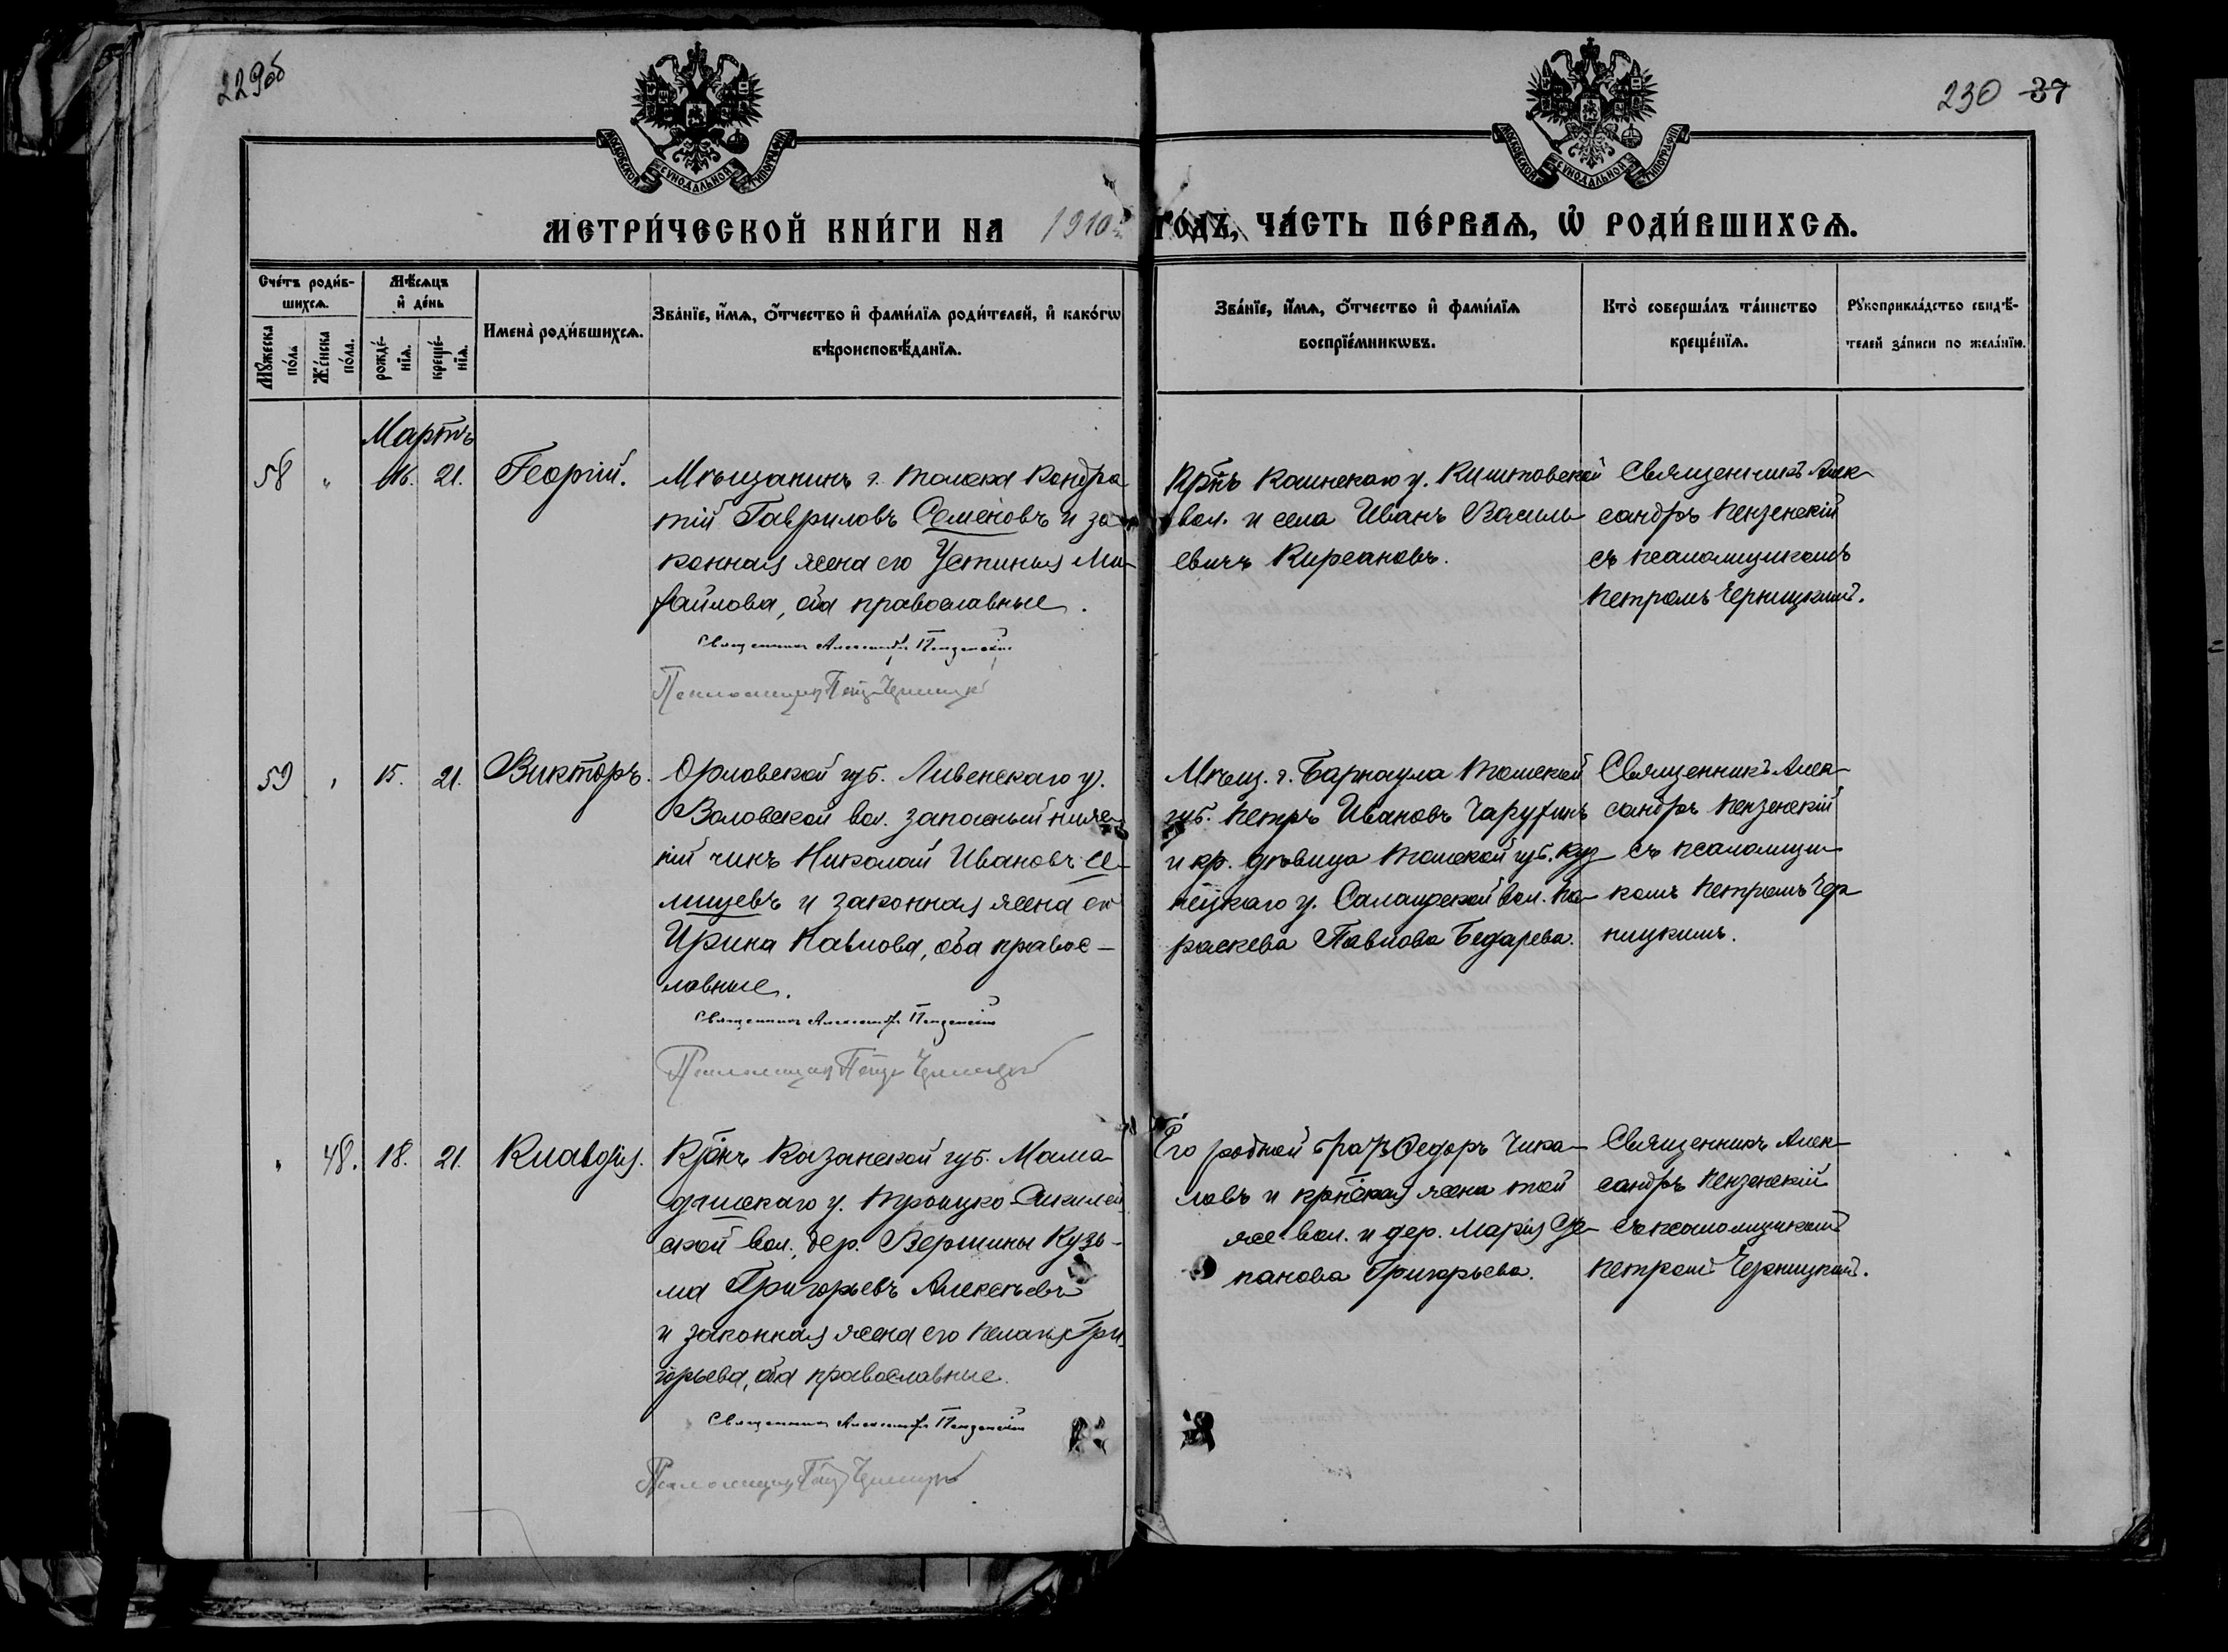 229об
230 37
МОСКОВСКОЙ СУНОДАЛЬНОЙ ТИПОГРАФІИ
МОСКОВСКОЙ СУНОДАЛЬНОЙ ТИПОГРАФІИ
МЕТРИ́ЧЕСКОЙ КНИ́ГИ НА 1910 ГО́ДЪ, ЧА́СТЬ ПЕ́РВАѦ, Ѡ҆ РОДИ́ВШИХСѦ.
Сче́тъ роди́в-
шихсѧ.
Мꙋ́жеска по́ла
Же́нска по́ла.
Мѣ́сѧцъ
и҆ де́нь
рожде́-
нїѧ.
креще́-
нїѧ.
Имена̀ роди́вшихсѧ.
Зва́нїе, и҆́мѧ, о҆́тчество и҆ фами́лїѧ роди́телей, и҆ како́гѡ
вѣроисповѣ́данїѧ.
Зва́нїе, и҆́мѧ, о҆́тчество и҆ фами́лїѧ
воспрїе́мникѡвъ.
Кто̀ соверша́лъ та́инство
креще́нїѧ.
Рꙋкоприкла́дство свидѣ́-
телей за́писи по жела́нїю.
Мартъ
58 " 16. 21. Георгій.
Мѣщанинъ г. Томска Кондра
тій Гавриловъ Семеновъ и за
конная жена его Устинья Ми-
хайлова, оба православные.
Священникъ Александръ Пензенскій
Псаломщикъ Петръ Черницкій
Крт̃нъ Каинскаго у. Киштовской
вол. и села Иванъ Василь
евичъ Кирсановъ.
Священникъ Алек-
сандръ Пензенскій
съ псаломщикомъ
Петромъ Черницкимъ.
59 " 15. 21. Викторъ.
Орловской губ. Ливенскаго у.
Воловской вол. запасный ниж
ній чинъ Николай Ивановъ Се-
лищевъ и законная жена его
Ирина Павлова, оба правос-
лавные.
Священникъ Александръ Пензенскій
Псаломщикъ Петръ Черницкій
Мѣщ. г. Барнаула Томской
губ. Петръ Ивановъ Чарухинъ
и кр. дѣвица Томской губ. Куз
нецкаго у. Салаирской вол. Па-
раскева Павлова Бедарева.
Священникъ Алек-
сандръ Пензенскій
съ псаломщи
комъ Петромъ Чер
ницкимъ.
" 48. 18. 21. Клавдія.
Кр̃нъ Казанской губ. Мама
дышскаго у. Троицко-
ской вол., дер. Вершины Кузь-
ма Григорьевъ Алексѣевъ
и законная жена его Пелагія Гри
горьева, оба православные.
Священникъ Александръ Пензенскій
Псаломщикъ Петръ Черницкій
Его родной братъ Федоръ Чика-
ловъ и крт̃ская жена той
же вол. и дер. Марія Сте-
панова Григорьева.
Священникъ Алек-
сандръ Пензенскій
съ псаломщикомъ
Петромъ Черницкимъ.